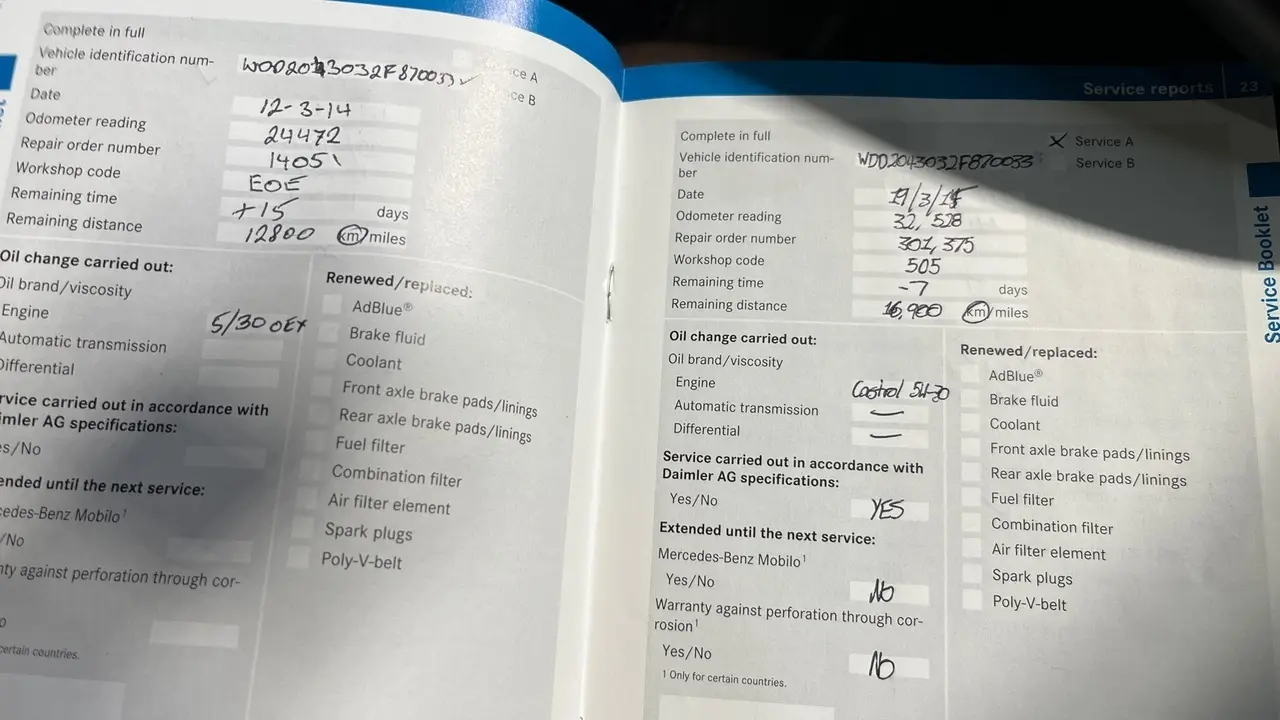 Complete in full
Vehicle identification num-
ber
ce A
ce B
Date 12-3-14
Odometer reading 24472
Repair order number 14051
Workshop code EOE
Remaining time +15 days
Remaining distance 12800 km/miles
Oil change carried out:
Oil brand/viscosity
Engine 5/30 OEX
Automatic transmission
Differential
rvice carried out in accordance with
imler AG specifications:
es/No
ended until the next service:
cedes-Benz Mobilo¹
/No
nty against perforation through cor-
o
certain countries.
Renewed/replaced:
AdBlue®
Brake fluid
Coolant
Front axle brake pads/linings
Rear axle brake pads/linings
Fuel filter
Combination filter
Air filter element
Spark plugs
Poly-V-belt
Service reports 23
Complete in full
X Service A
Service B
Vehicle identification num- WDD2043032F870033
ber
Date
Odometer reading 32,528
Repair order number 301,375
Workshop code 505
Remaining time -7 days
Remaining distance 16,900 km/miles
Oil change carried out:
Oil brand/viscosity
Engine Castrol 5W-30
Automatic transmission —
Differential —
Service carried out in accordance with
Daimler AG specifications:
Yes/No YES
Extended until the next service:
Mercedes-Benz Mobilo¹
Yes/No No
Warranty against perforation through cor-
rosion¹
Yes/No No
¹ Only for certain countries.
Renewed/replaced:
AdBlue®
Brake fluid
Coolant
Front axle brake pads/linings
Rear axle brake pads/linings
Fuel filter
Combination filter
Air filter element
Spark plugs
Poly-V-belt
Service Booklet